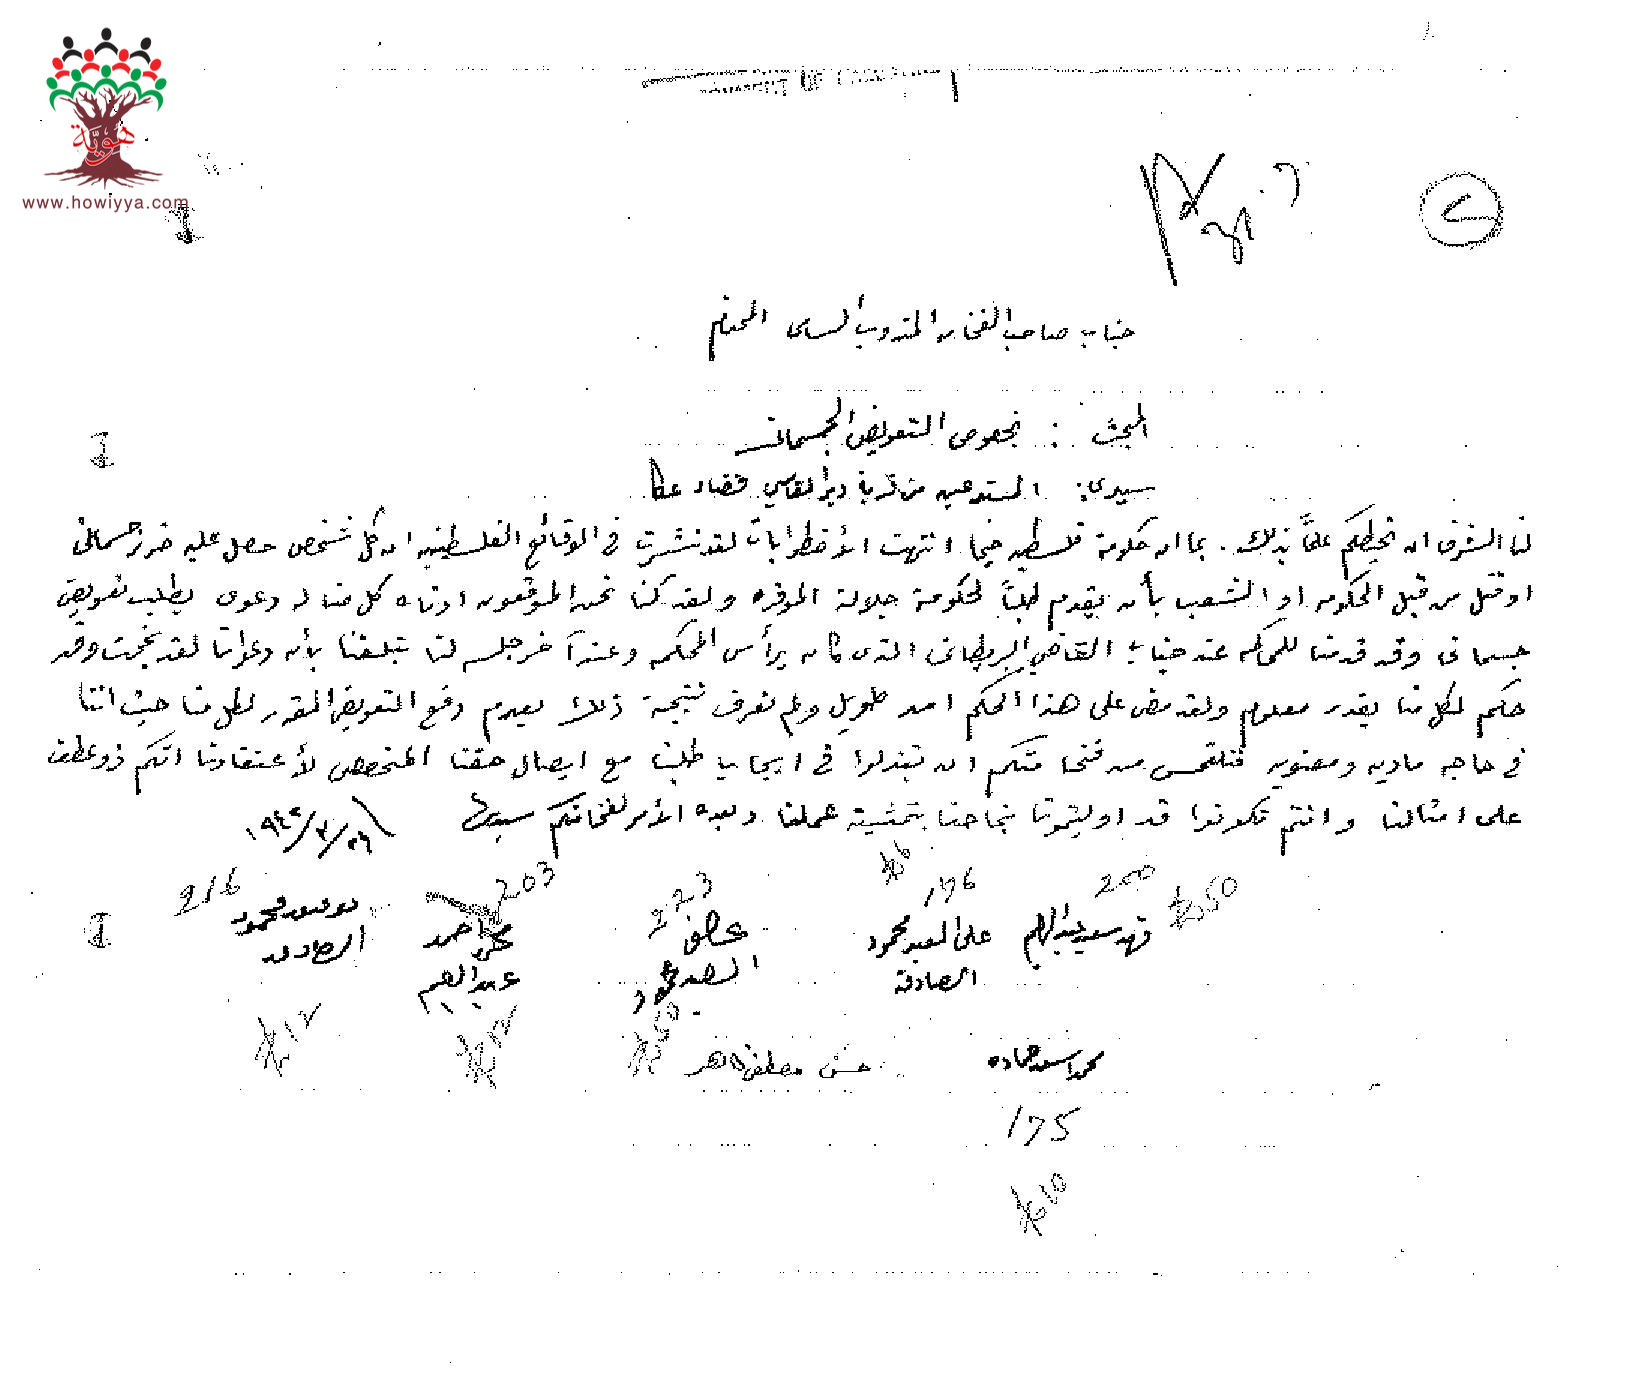 هويّة
www.howiyya.com
جناب صاحب الفخامه المندوب السامي المحترم
المبحث : بخصوص التعويض الجسماني
سيدي: المستدعين من قرية ديرالقاسي قضاء عكا
لنا الشرف ان نحيطكم علماً بذلك. بما ان حكومة فلسطين حينما انتهت الأضطرابات لقد نشرت في الوقائع الفلسطينيه ان كل شخص حصل عليه ضرر جسماني
او قتل من قبل الحكومه او الشعب بأن يقدم طلباً لحكومة جلالة الموقره ولقد كنا نحن الموقعون ادناه كل منا له دعوى بطلب تعويض
جسماني وقد قدمنا للمحاكمه عند جناب القاضي البريطاني الذي كان يرأس المحكمه وعند آخر جلسه لنا تبلغنا بأن دعواتنا لقد نجحت وقد
حكم لكل منا بقدر معلوم ولقد مضى على هذا الحكم امد طويل ولم نعرف نتيجة ذلك بعدم دفع التعويض المقدر لكل منا حيث اننا
في حاجه ماديه ومعنويه فنلتمس من فخامتكم ان تبذلوا في ايجابيا طلبنا مع ايصال حقنا المختص لأعتقادنا انكم ذو عطف
على امثالنا وانتم تكونوا قد اوليتونا بنجاحنا بتمشية عملنا وبعده الأمر لفخامتكم سيدي
203 216
223 176 200
£550
فهد سعيد عبدالرحيم على السعيد محمود
الصادق
احمد
عبدالرحيم
محمود
الصادق
£12 £12
محمد اسعد حماده حسن مصطفى طاهر
175
£610